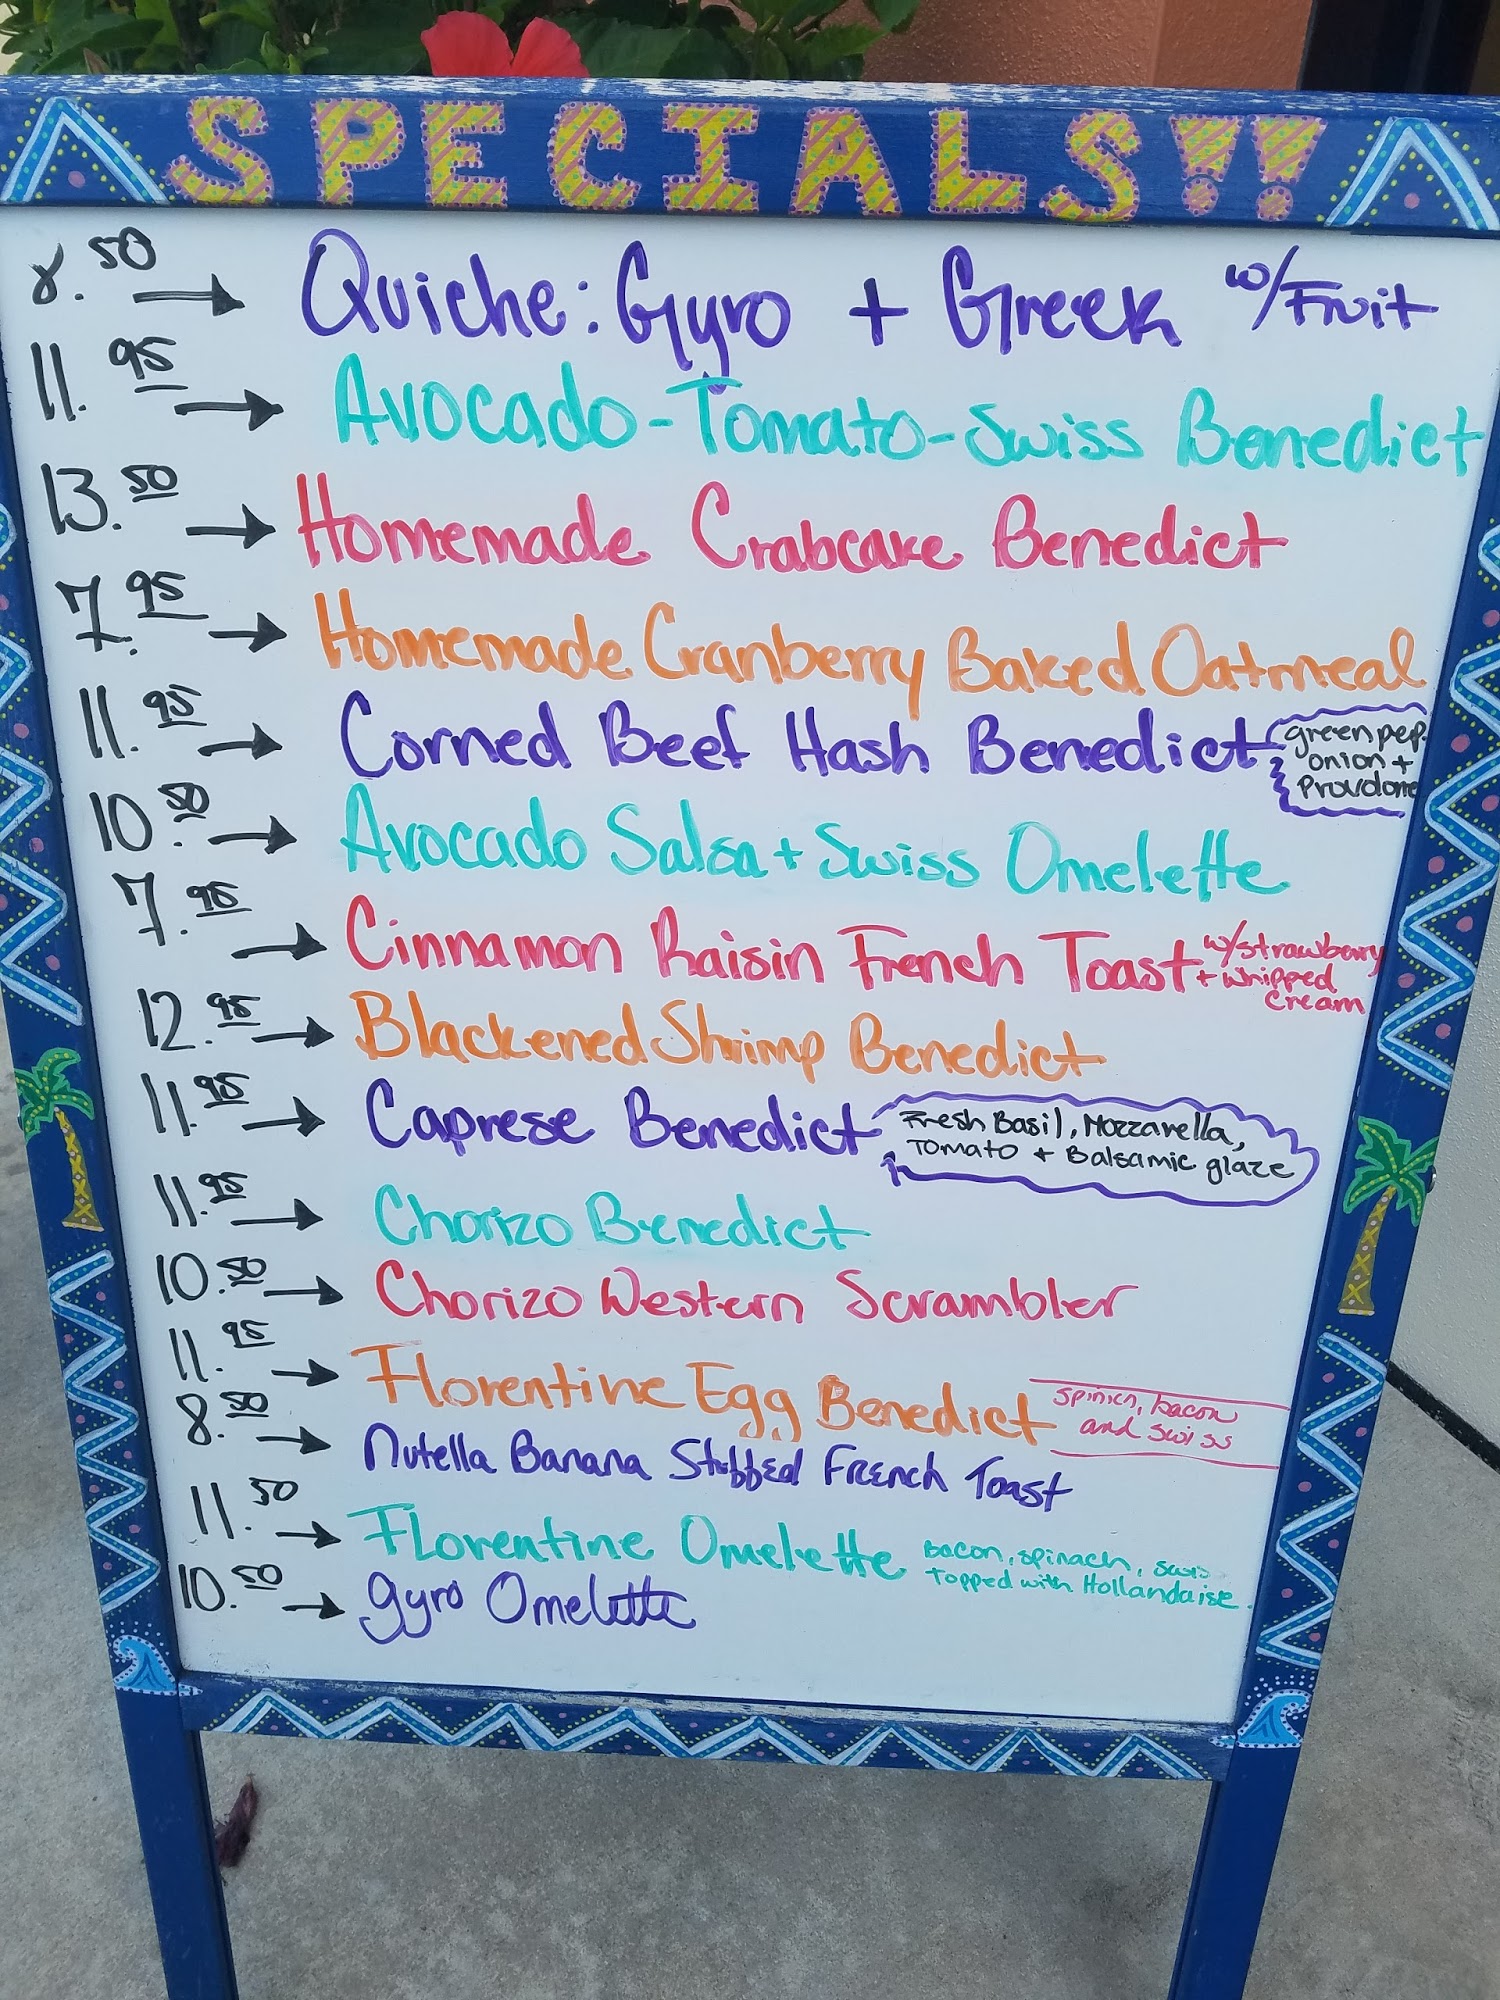 SPECIALS!!
8.50 → Quiche: Gyro + Greek w/Fruit
11.95 → Avocado-Tomato-Swiss Benedict
13.50 → Homemade Crabcake Benedict
7.95 → Homemade Cranberry Baked Oatmeal
11.95 → Corned Beef Hash Benedict
green pep.
onion +
Provolone
10.50 → Avocado Salsa + Swiss Omelette
7.95 → Cinnamon Raisin French Toast w/strawberry
+ whipped
cream
12.95 → Blackened Shrimp Benedict
11.95 → Caprese Benedict
Fresh Basil, Mozzarella,
Tomato + Balsamic glaze
11.95 → Chorizo Benedict
10.50 → Chorizo Western Scrambler
11.95 → Florentine Egg Benedict
spinich, bacon
and swiss
8.50 → Nutella Banana Stuffed French Toast
11.50 → Florentine Omelette
Bacon, spinach, swiss
Topped with Hollandaise.
10.50 → gyro Omelette